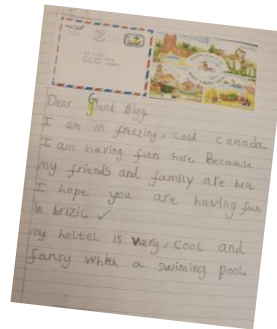 Dear Giant Bigg
I am in freezing, cold canada.
I am having fun here Because
my friends and family are here
I hope you are having fun
in brizil ✓
my holtel is very, cool and
fansy whith a swiming pool